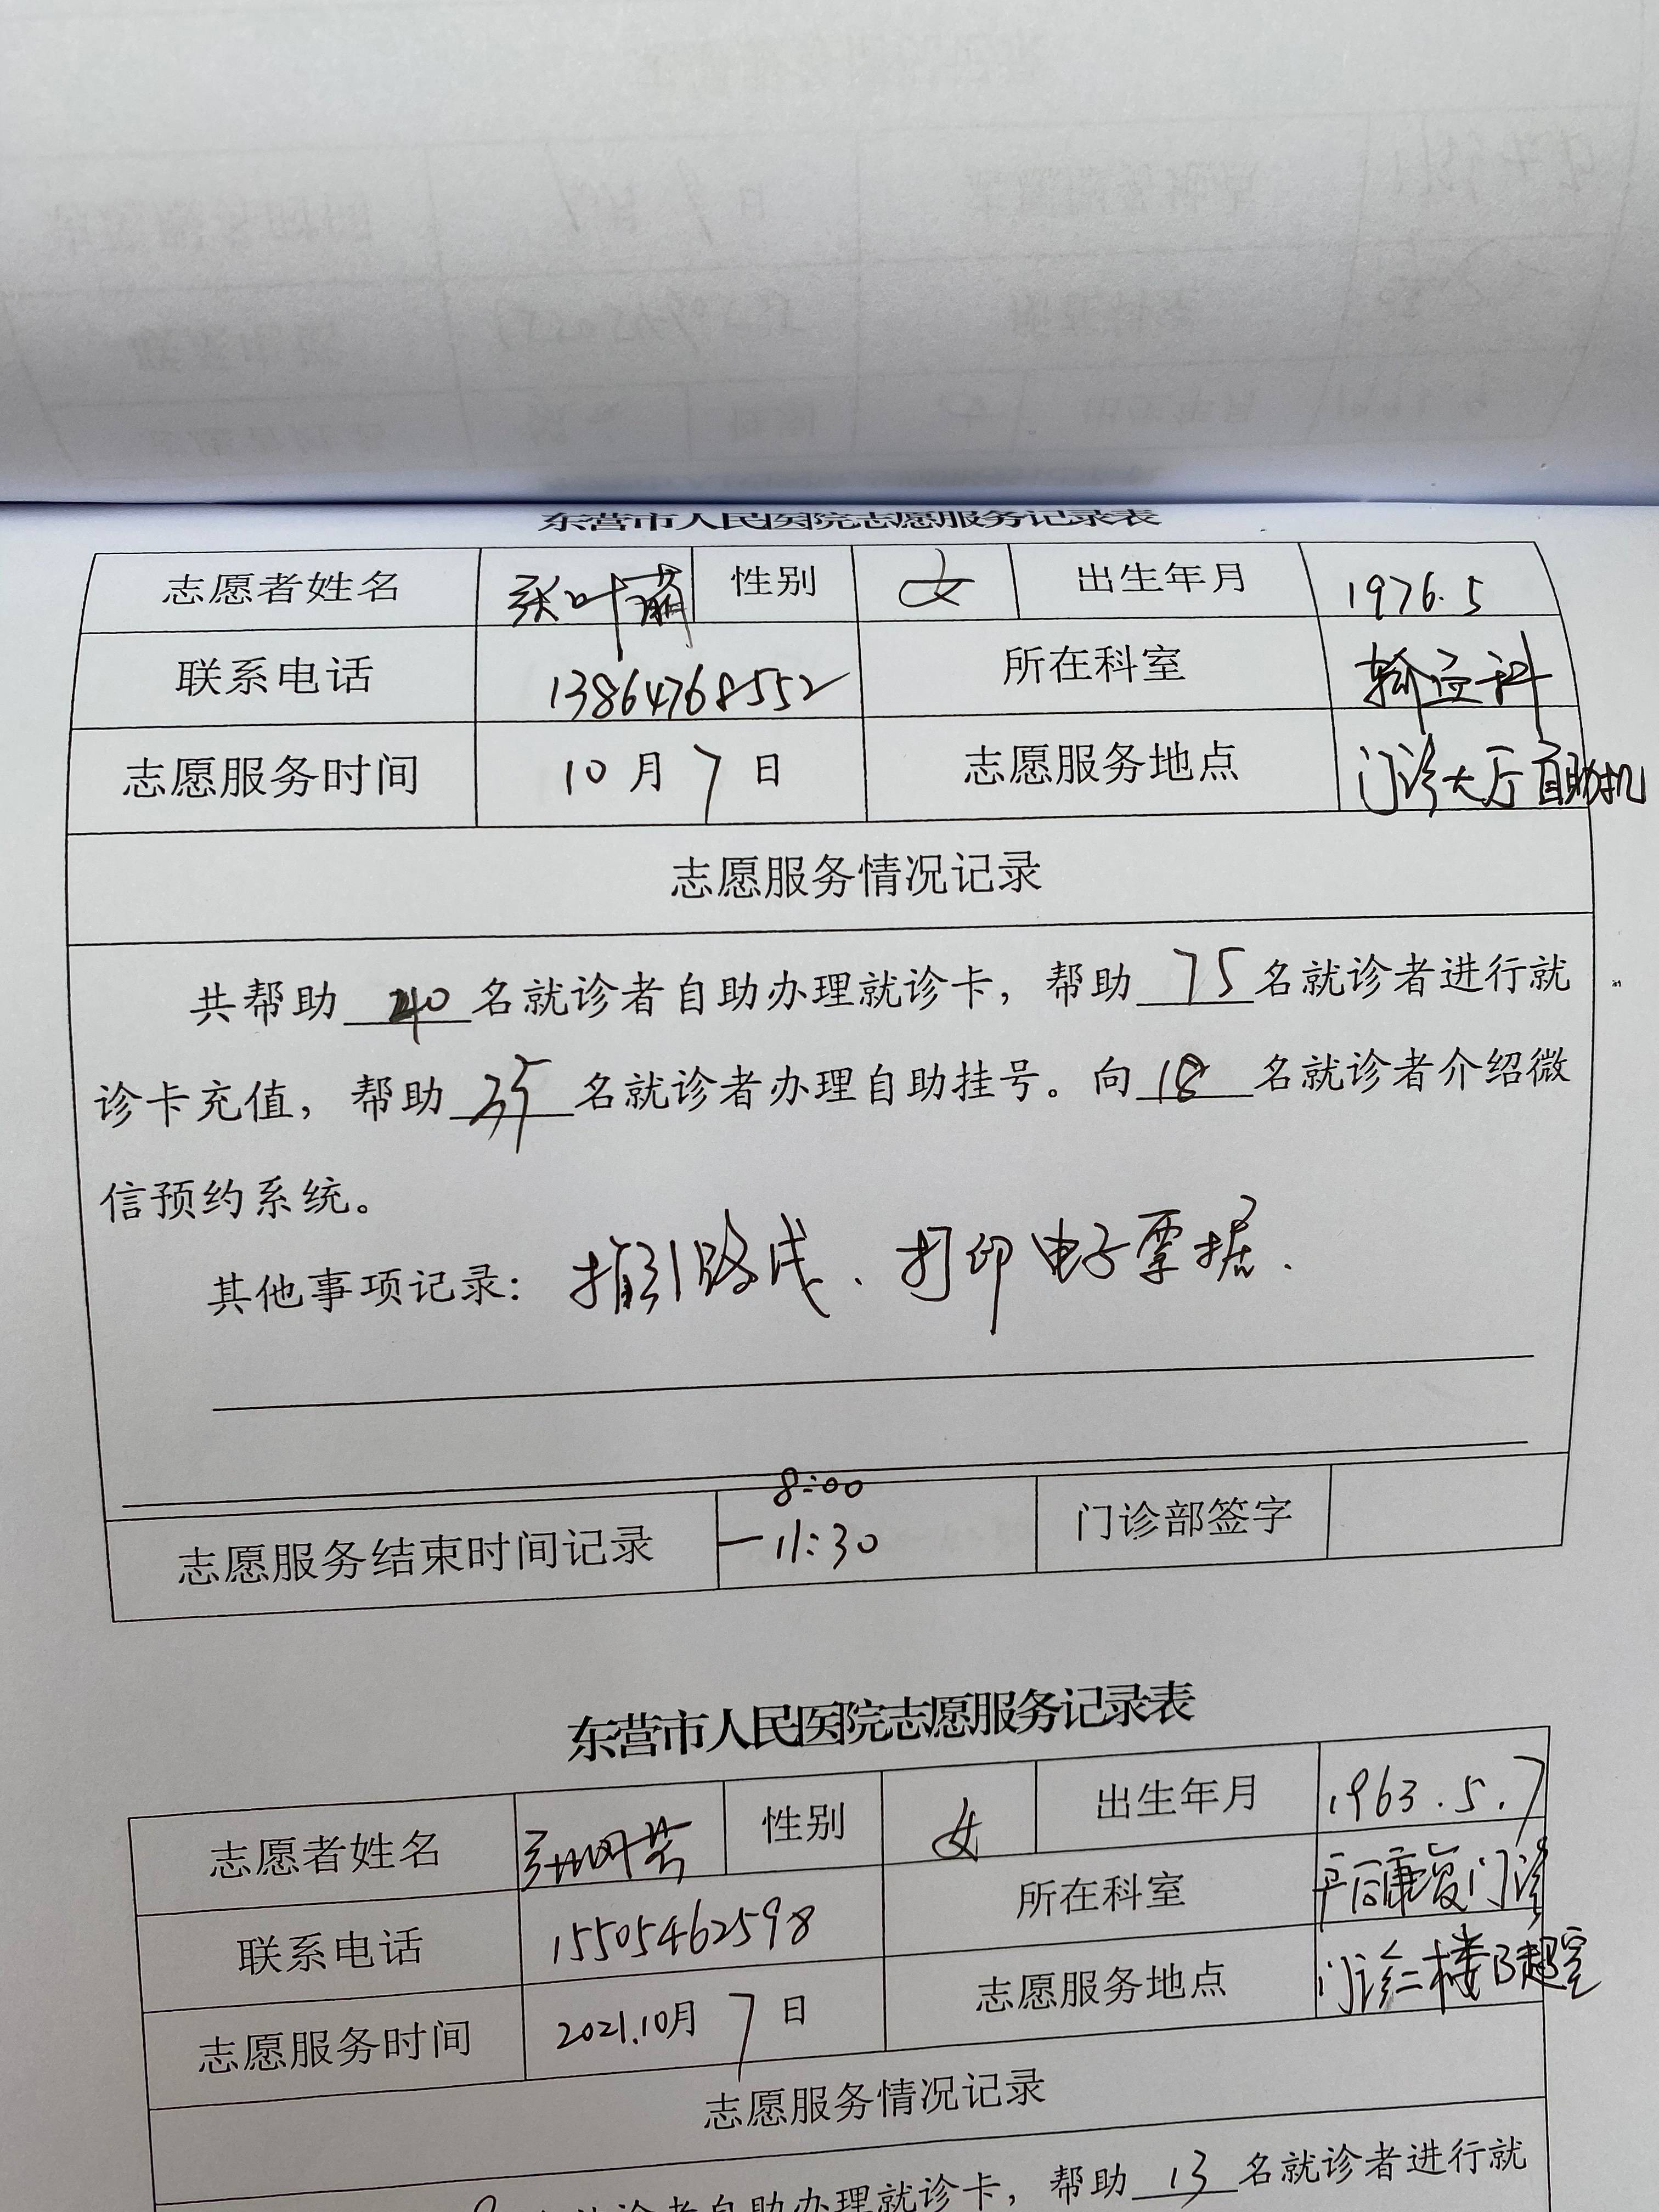 东营市人民医院志愿服务记录表
志愿者姓名 张叶萌 性别 女 出生年月 1976.5
联系电话 13864768552 所在科室 输血科
志愿服务时间 10月7日 志愿服务地点 门诊大厅自助机
志愿服务情况记录
共帮助 40 名就诊者自助办理就诊卡，帮助 75 名就诊者进行就
诊卡充值，帮助 35 名就诊者办理自助挂号。向 18 名就诊者介绍微
信预约系统。
其他事项记录： 指引路线、打印电子票据.
8:00
志愿服务结束时间记录 —11:30 门诊部签字
东营市人民医院志愿服务记录表
志愿者姓名 性别 女 出生年月 1963.5.7
联系电话 15505462598 所在科室 产后康复门诊
志愿服务时间 2021.10月7日 志愿服务地点 门诊二楼B超室
志愿服务情况记录
名就诊者自助办理就诊卡，帮助 13 名就诊者进行就